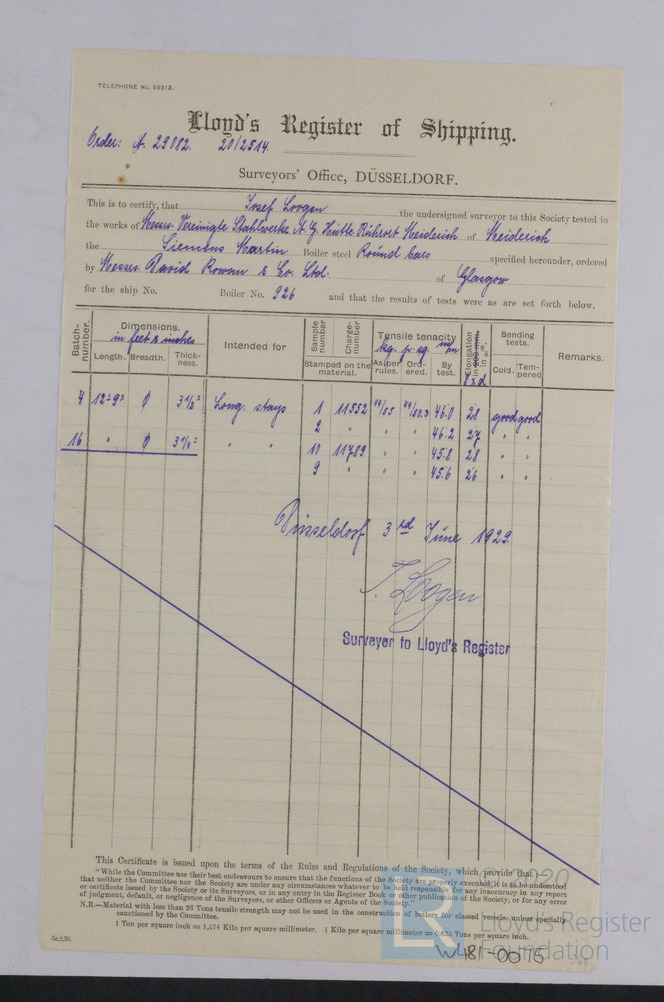 TELEPHONE No. 60313.
Lloyd's Register of Shipping.
Order: A. 29082. 20/2514.
Surveyors' Office, DÜSSELDORF.
This is to certify, that Josef Loogen the undersigned surveyor to this Society tested in
the works of Messrs. Vereinigte Stahlwerke A.G. Hütte Ruhrort Meiderich of Meiderich
the Siemens Martin Boiler steel Round bars specified hereunder, ordered
by Messrs. David Rowan & Co. Ltd. of Glasgow
for the ship No. Boiler No. 926 and that the results of tests were as are set forth below.
Batch-number. Dimensions. in feet & inches Length. Breadth. Thick-ness. Intended for Sample number Charge-number Stamped on the material. Tensile tenacity kg. p. sq. m/m As per rules. Ord-ered. By test. Elongation in 200 mm. in %. 8 x d Bending tests. Cold. Tem-pered Remarks.
4 12'-9" ϕ 3 1/2" Long. stays 1 11552 44/55 44/50.3 46.0 28 good good
2 " " " 46.2 27 " "
16 " ϕ 3 1/4" " " 10 11789 " " 45.8 28 " "
9 " " " 45.6 26 " "
Düsseldorf 3rd June 1929.
J. Loogen
Surveyor to Lloyd's Register
This Certificate is issued upon the terms of the Rules and Regulations of the Society, which provide that:—
"While the Committee use their best endeavours to ensure that the functions of the Society are properly executed, it is to be understood
that neither the Committee nor the Society are under any circumstances whatever to be held responsible for any inaccuracy in any report
or certificate issued by the Society or its Surveyors, or in any entry in the Register Book or other publication of the Society, or for any error
of judgment, default, or negligence of the Surveyors, or other Officers or Agents of the Society."
N.B.—Material with less than 26 Tons tensile strength may not be used in the construction of boilers for classed vessels, unless specially
sanctioned by the Committee.
1 Ton per square inch = 1,574 Kilo per square millimeter. 1 Kilo per square millimeter = 0,635 Tons per square inch.
W481-0075
© 2020
LR
Lloyd's Register
Foundation